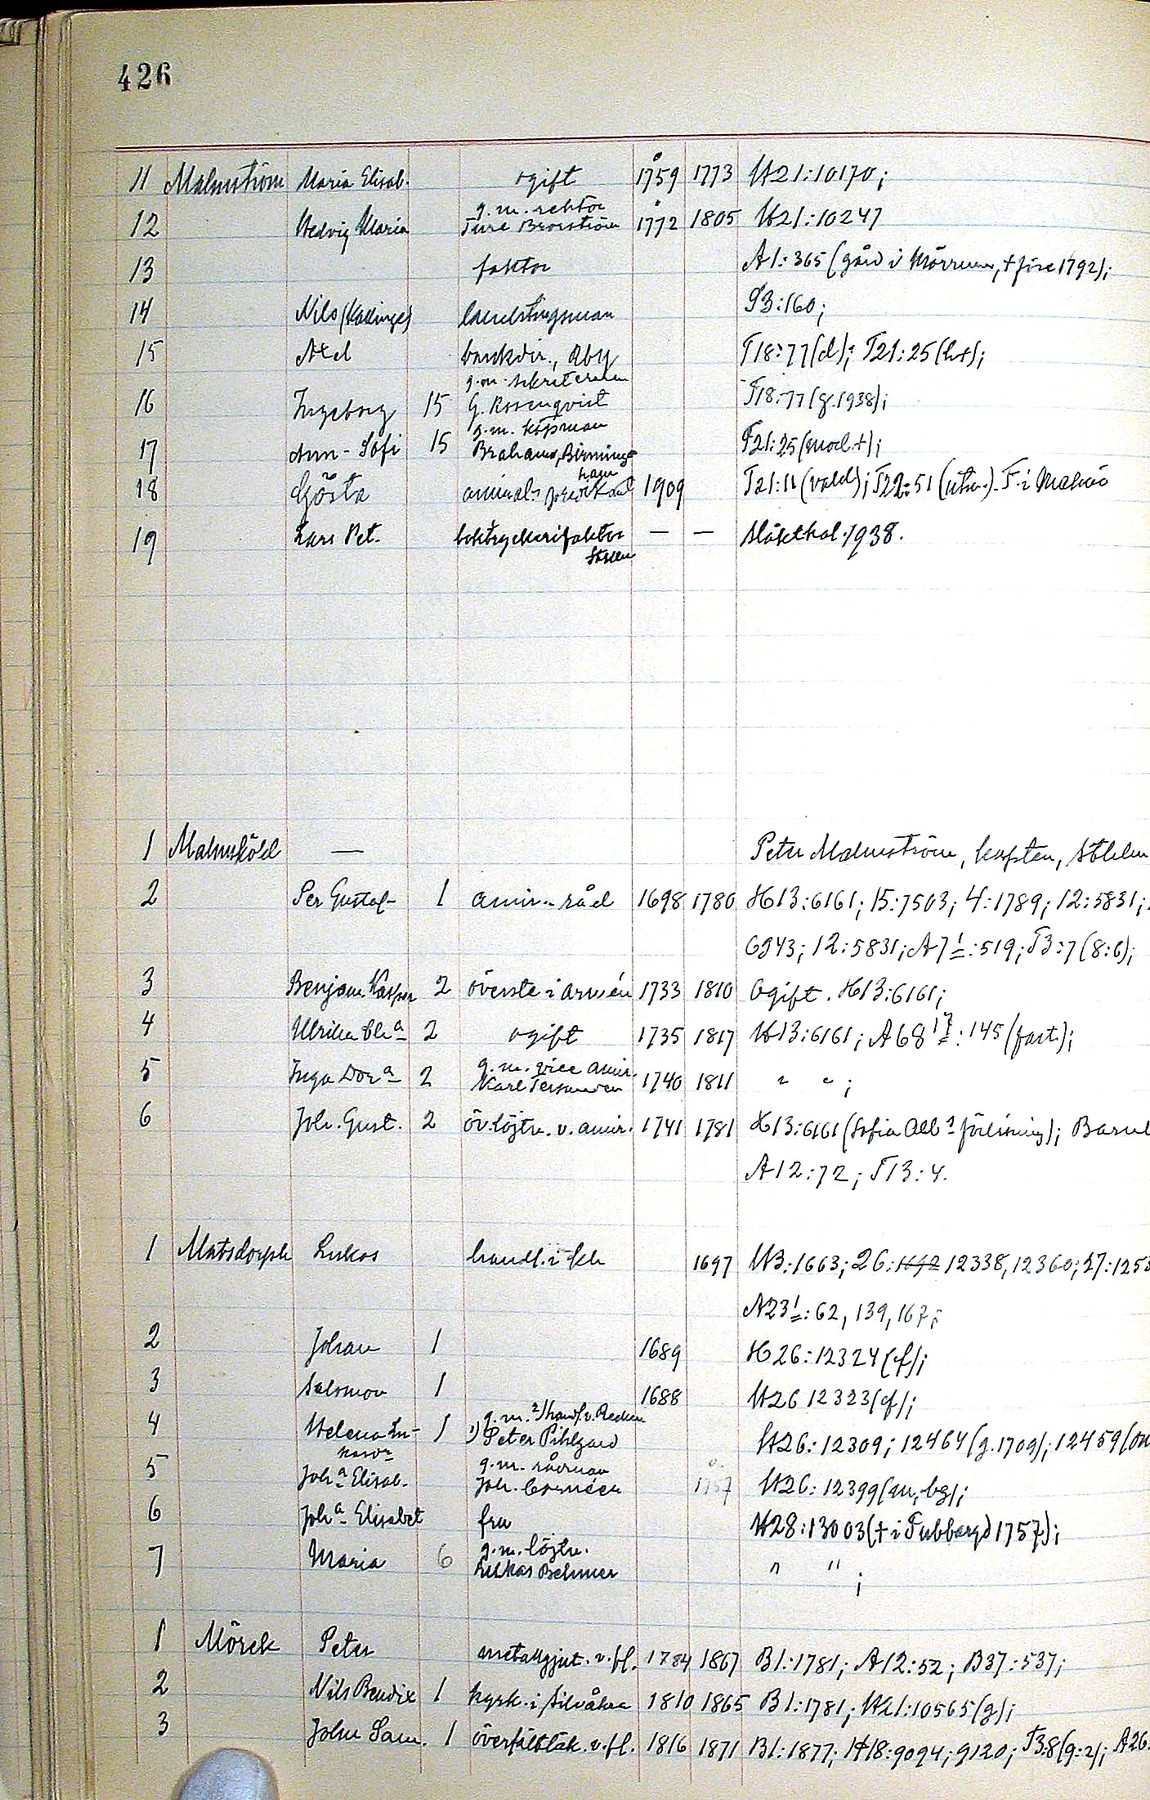 426
11 Malmström Maria Elisab. ogift 1759 1773 H21:10170;
12 Hedvig Maria g.m. rektor Ture Brorström 1772 1805 H21:10247
13 faktor A1:365 (gård i Mörrum, † före 1792);
14 Nils (Kallinge) landstingsman T3:160;
15 Axel bankdir., Åby T18:77(d); T21:25(h+);
16 Ingeborg 15 g.m. sekreteraren G. Rosenqvist T18:77(g.1938);
17 Ann-Sofi 15 g.m. köpman Brahams, Birmingham T21:25(mod.+);
18 Gösta amiral- 1909 T21:11(vald); T22:51 (utn.). F. i Malmö
19 Lars Pet. boktryckerifaktor — — Släktkal. 1938.
1 Malmsköld — Peter Malmström, kapten, Sthlm
2 Per Gustaf 1 amir.-råd 1698 1780 H13:6161; 15:7503; 4:1789; 12:5831;
6243; 12:5831; A7 1:519; T3:7(8:6);
3 Benjam. Kasper 2 överste i armén 1733 1810 Ogift. H13:6161;
4 Ulrika Ele a 2 ogift 1735 1817 H13:6161; A68 17:145 (fast.);
5 Inga Dor a 2 g.m. vice amir. Karl Tersmeden 1740 1811 " " ;
6 Joh. Gust. 2 öv.löjtn. v. amir. 1741 1781 H13:6161 (Sofia Alb a förlisning); Barnl
A12:72; T13:4.
1 Matsdorph Lukas handl. i Kh 1697 H3:1663; 26: 12338, 12360; 27:1253
A23 1:62, 139, 167;
2 Johan 1 1689 H26:12324(f);
3 Salomon 1 1688 H26 12323(f);
4 Helena 1 g.m. 2) handl. v. Recken 1) Peter Pihlgard H26:12309; 12464 (g.1709); 12459 (om
5 Joh a Elisab. g.m. rådman Joh. 1757 H26:12399(an, bg);
6 Joh a Elisabet fru H28:13003(† i Tubbaryd 1757);
7 Maria 6 g.m. löjtn. Lukas Behmer " " ;
1 Mörck Peter metallgjut. v. fl. 1784 1867 B1:1781; A12:52; B37:537;
2 Nils Bendix 1 kyrk. i Sillåkra 1810 1865 B1:1781; H21:10565(g);
3 John Sam. 1 överfältläk. v. fl. 1816 1871 B1:1877; H18:9094; 9120; T3:8(9:2); A26